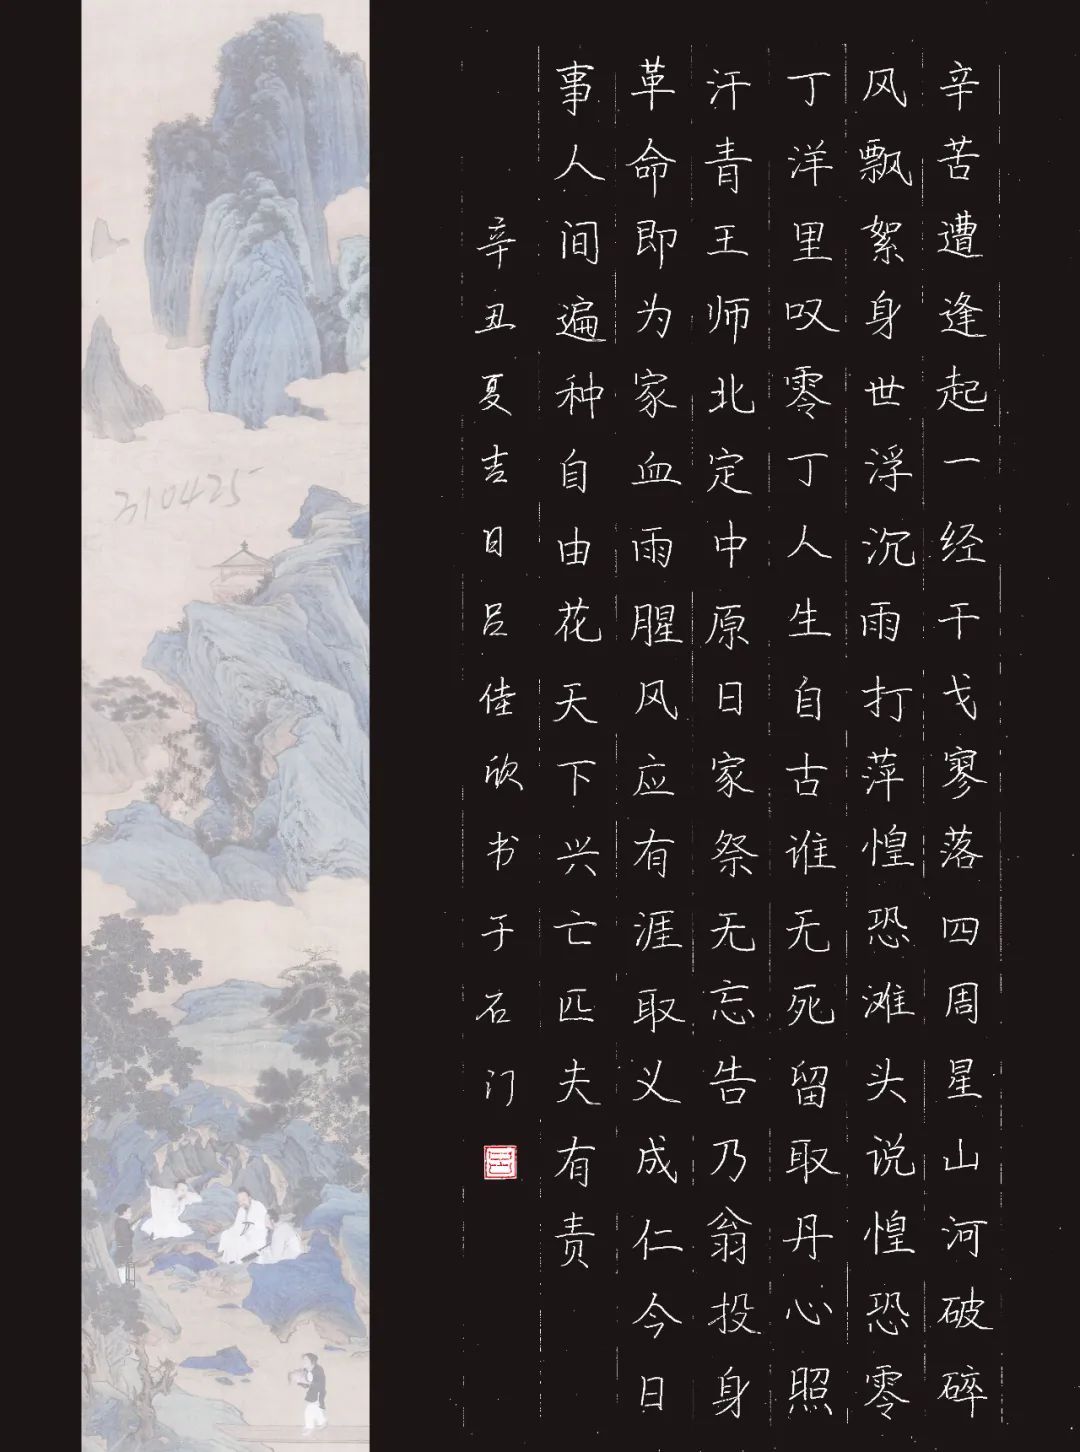 辛苦遭逢起一经干戈寥落四周星山河破碎
风飘絮身世浮沉雨打萍惶恐滩头说惶恐零
丁洋里叹零丁人生自古谁无死留取丹心照
汗青王师北定中原日家祭无忘告乃翁投身
革命即为家血雨腥风应有涯取义成仁今日
事人间遍种自由花天下兴亡匹夫有责
辛丑夏吉日吕佳欣书于石门
310425